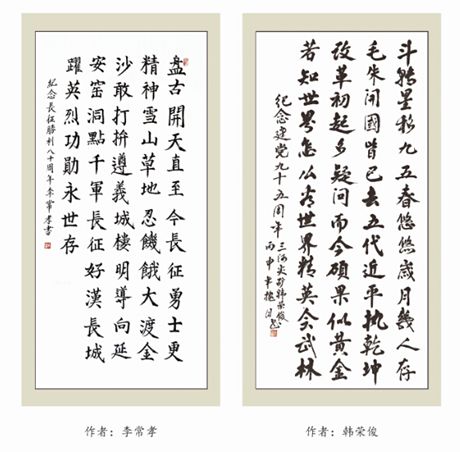 盘古開天直至今長征勇士更
精神雪山草地忍饑餓大渡金
沙敢打拚遵義城樓明導向延
安窑洞點千軍長征好漢長城
躍英烈功勛永世存
紀念長征勝利八十周年李常孝書
作者：李常孝
斗转星移九五春悠悠歲月幾人存
毛朱開國皆已去五代近平执乾坤
改革初起多疑问而今碩果似黄金
若知世界怎么看世界精英会武林
纪念建党九十五周年
三河尖矿韩荣俊
丙申年
作者：韩荣俊